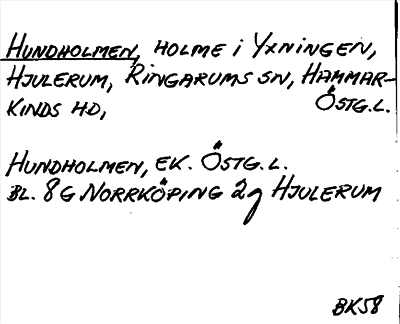 HUNDHOLMEN, HOLME i YXNINGEN,
HJULERUM, RINGARUMS SN, HAMMAR-
KINDS HD, ÖSTG.L.
HUNDHOLMEN, EK. ÖSTG.L.
BL. 8G NORRKÖPING 2g HJULERUM
BK58